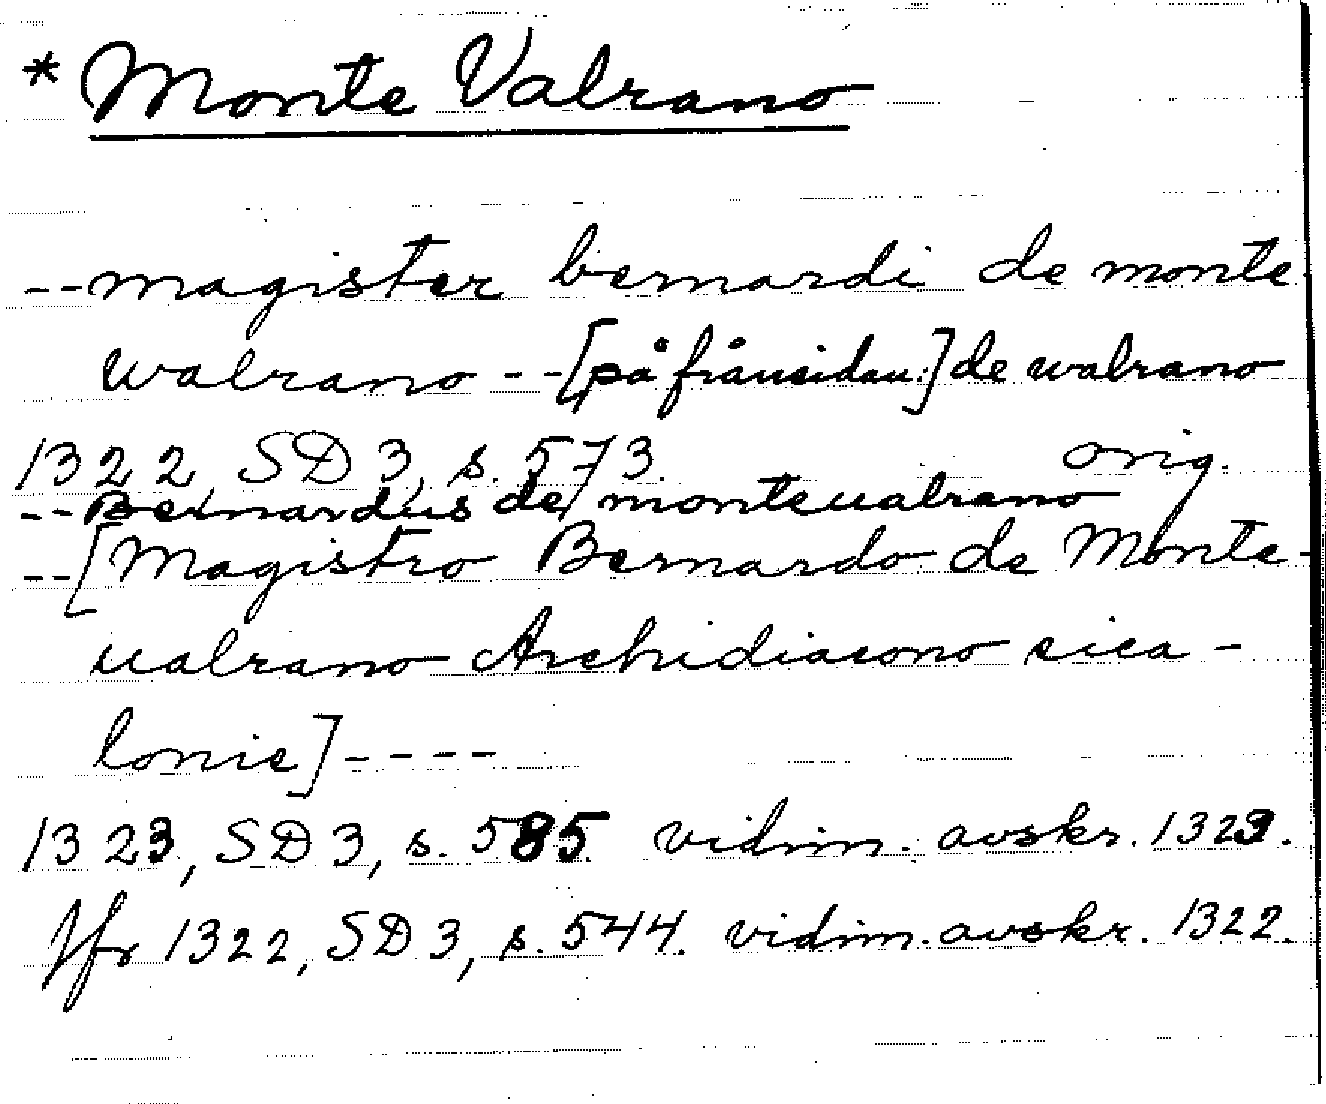 * Monte Valrano
-- magister bernardi de monte
walrano -- [på frånsidan:] de walrano
1322, SD 3, s. 573. orig.
-- Bernardus de monteualrano
-- [Magistro Bernardo de Monte-
ualrano Archidiacono cica-
lonie] ----
1323, SD 3, s. 585. vidim. avskr. 1323.
Jfr 1322, SD 3, s. 544. vidim. avskr. 1322.